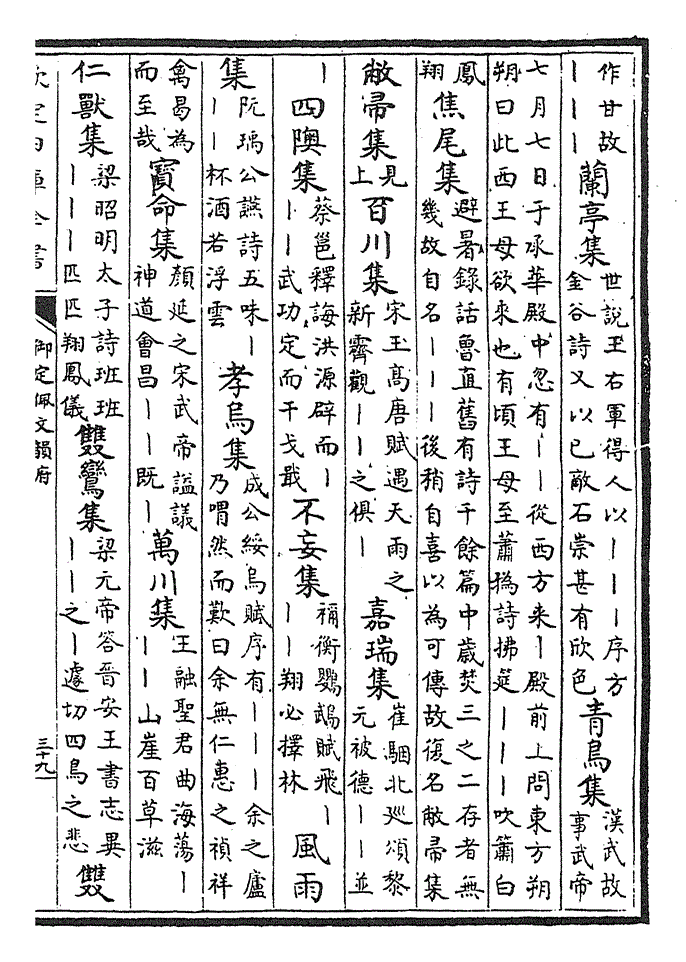 作甘故丨丨丨蘭亭集世說王右軍得人以丨丨丨序方金谷詩又以已敵石崇甚有欣色青鳥集漢武故事武帝
七月七日于承華殿中忽有丨丨從西方来丨殿前上問東方朔朔曰此西王母欲來也有頃王母至蕭撝詩拂筵丨丨丨吹簫白
鳳翔焦尾集避暑錄話魯直舊有詩千餘篇中歲焚三之二存者無幾故自名丨丨丨後稍自喜以為可傳故復名敝帚集
敝帚集見上百川集宋玉高唐賦遇天雨之新霽觀丨丨之俱丨嘉瑞集崔駰北廵頌黎元被德丨丨並
丨四隩集蔡邕釋誨洪源辟而丨丨丨武功定而干戈戢不妄集禰衡鸚鵡賦飛丨丨丨翔必擇林風雨
集阮瑀公讌詩五味丨丨丨杯酒若浮雲孝烏集成公綏烏賦序有丨丨丨余之廬乃喟然而歎曰余無仁惠之禎祥
禽曷為而至哉寳命集顔延之宋武帝謚議神道會昌丨丨既丨萬川集王融聖君曲海蕩丨丨丨山崖百草滋
仁獸集梁昭明太子詩班班丨丨丨匹匹翔鳳儀雙鸞集梁元帝答晉安王書志異丨丨之丨遽切四鳥之悲雙
欽定四庫全書
御定佩文韻府
三十九